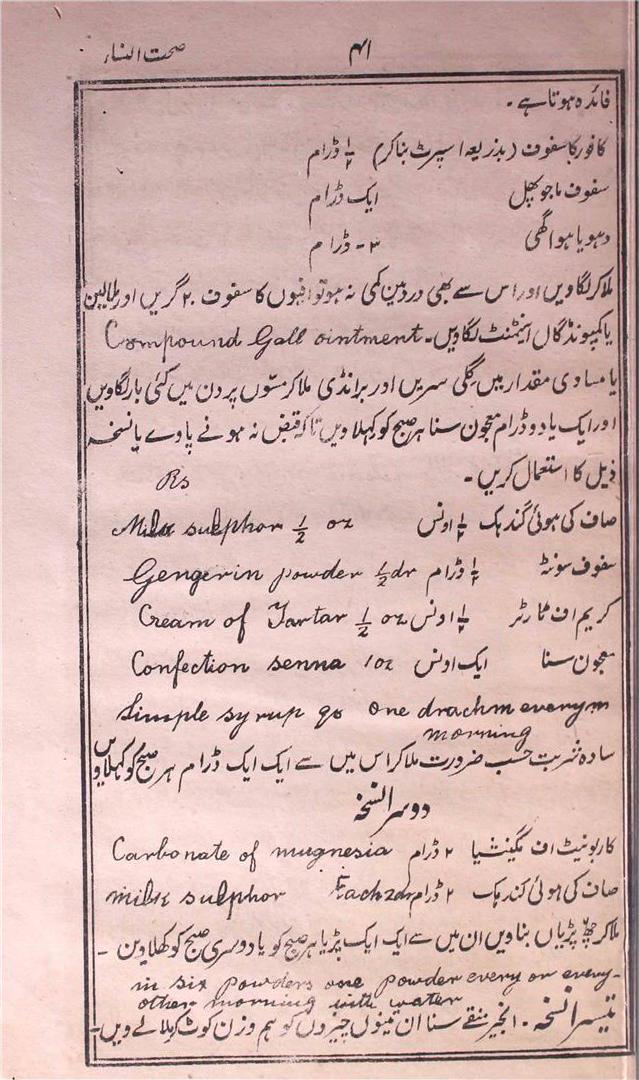 صحت النساء
۴۱
فائدہ ہوتا ہے۔
کافور کا سفوف (بذریعہ اسپرٹ بناکر) ½ ڈرام
سفوف ماجوپھل ایک ڈرام
دہویا ہوا گھی ۳۔ ڈرام
ملاکر لگاویں اور اس سے بھی درد مین کمی نہ ہو تو افیوں کا سفوف ۲۰ گریں اور ملالین
یا کمپونڈ گال اینٹمنٹ لگاویں۔ Compound Gall ointment
یا مساوی مقدار میں گلی سریں اور برانڈی ملاکر مسّوں پر دن میں کئی بار لگاویں
اور ایک یا دو ڈرام معجون سنا ہر صبح کو کہلاویں تاکہ قبض نہ ہونے پاوے یا نسخہ
ذیل کا استعمال کریں۔
Rs
صاف کی ہوئی گندہک ½ اونس Milk sulphor ½ oz
سفوف سونٹہ ½ ڈرام Gengerin powder ½dr
کریم اف ٹارٹر ½ اونس Cream of Tartar ½ oz
معجون سنا ایک اونس Confection senna 1oz
Simple syrup qo One drachm every m
morning
سادہ شربت حسب ضرورت ملاکر اس میں سے ایک ایک ڈرام ہر صبح کو کہلاویں
دوسرا نسخہ
کاربونیٹ اف میگنیشیا ۲ ڈرام Carbonate of mugnesia
صاف کی ہوئی گندہک ۲ ڈرام Each 2dr milk sulphor
ملاکر چھ پڑیاں بناویں ان میں سے ایک ایک پڑیا ہر صبح کو یا دوسری صبح کو کھلاوین۔
in six powders one powder every or every-
other morning with water
تیسرا نسخہ۔ انجیر منقے سنا ان تینوں چیزوں کو ہم وزن کوٹ کر ملالے ویں۔